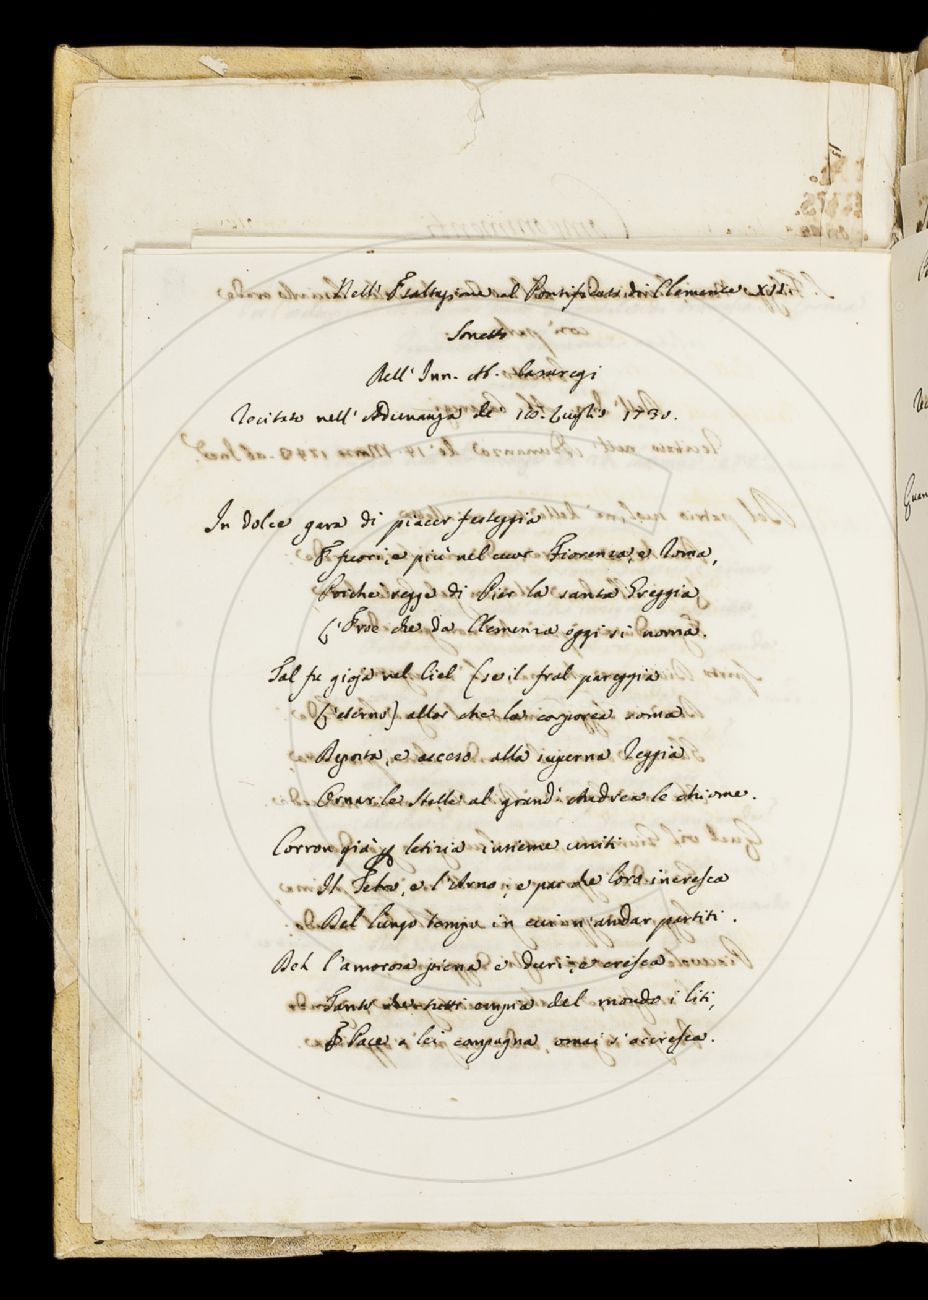 Nell' Esaltazione al Pontificato di Clemente XII.
Sonetto
Dell' Inn. Ab. Casaregi
Recitato nell' Adunanza de 16. Luglio 1730.
In dolce gara di piacer festeggia
E fuori, e più nel cuor Fiorenza, e Roma,
Poichè regge di Pier la santa Greggia
L'Eroe che da Clemenza oggi si noma.
Tal fu gioja nel Ciel (se il fral pareggia
L'eterno) allor che la corporea soma
Deposta, e acceso alla superna Reggia
Ornar le Stelle al grand' Andrea le chiome.
Corron già p letizia insieme uniti
Il Tebro, e l'Arno, e par che loro incresca
Del lungo tempo in cui n' andar partiti.
Deh l'amorosa piena e duri, e cresca
Tanto che tutti empia del mondo i liti,
E Pace a lei compagna omai s'accresca.